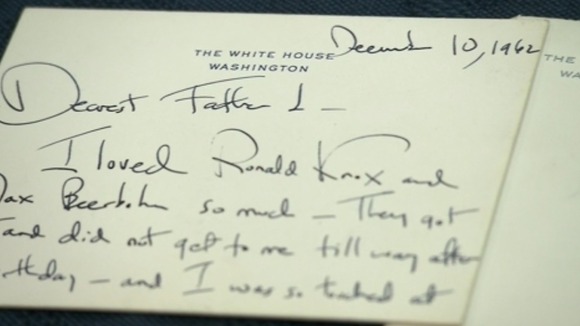 THE WHITE HOUSE
WASHINGTON
December 10, 1962
Dearest Father L –
I loved Ronald Knox and
Max Beerbohm so much – They got
and did not get to me till way after
thday – and I was so touched at
THE
WA